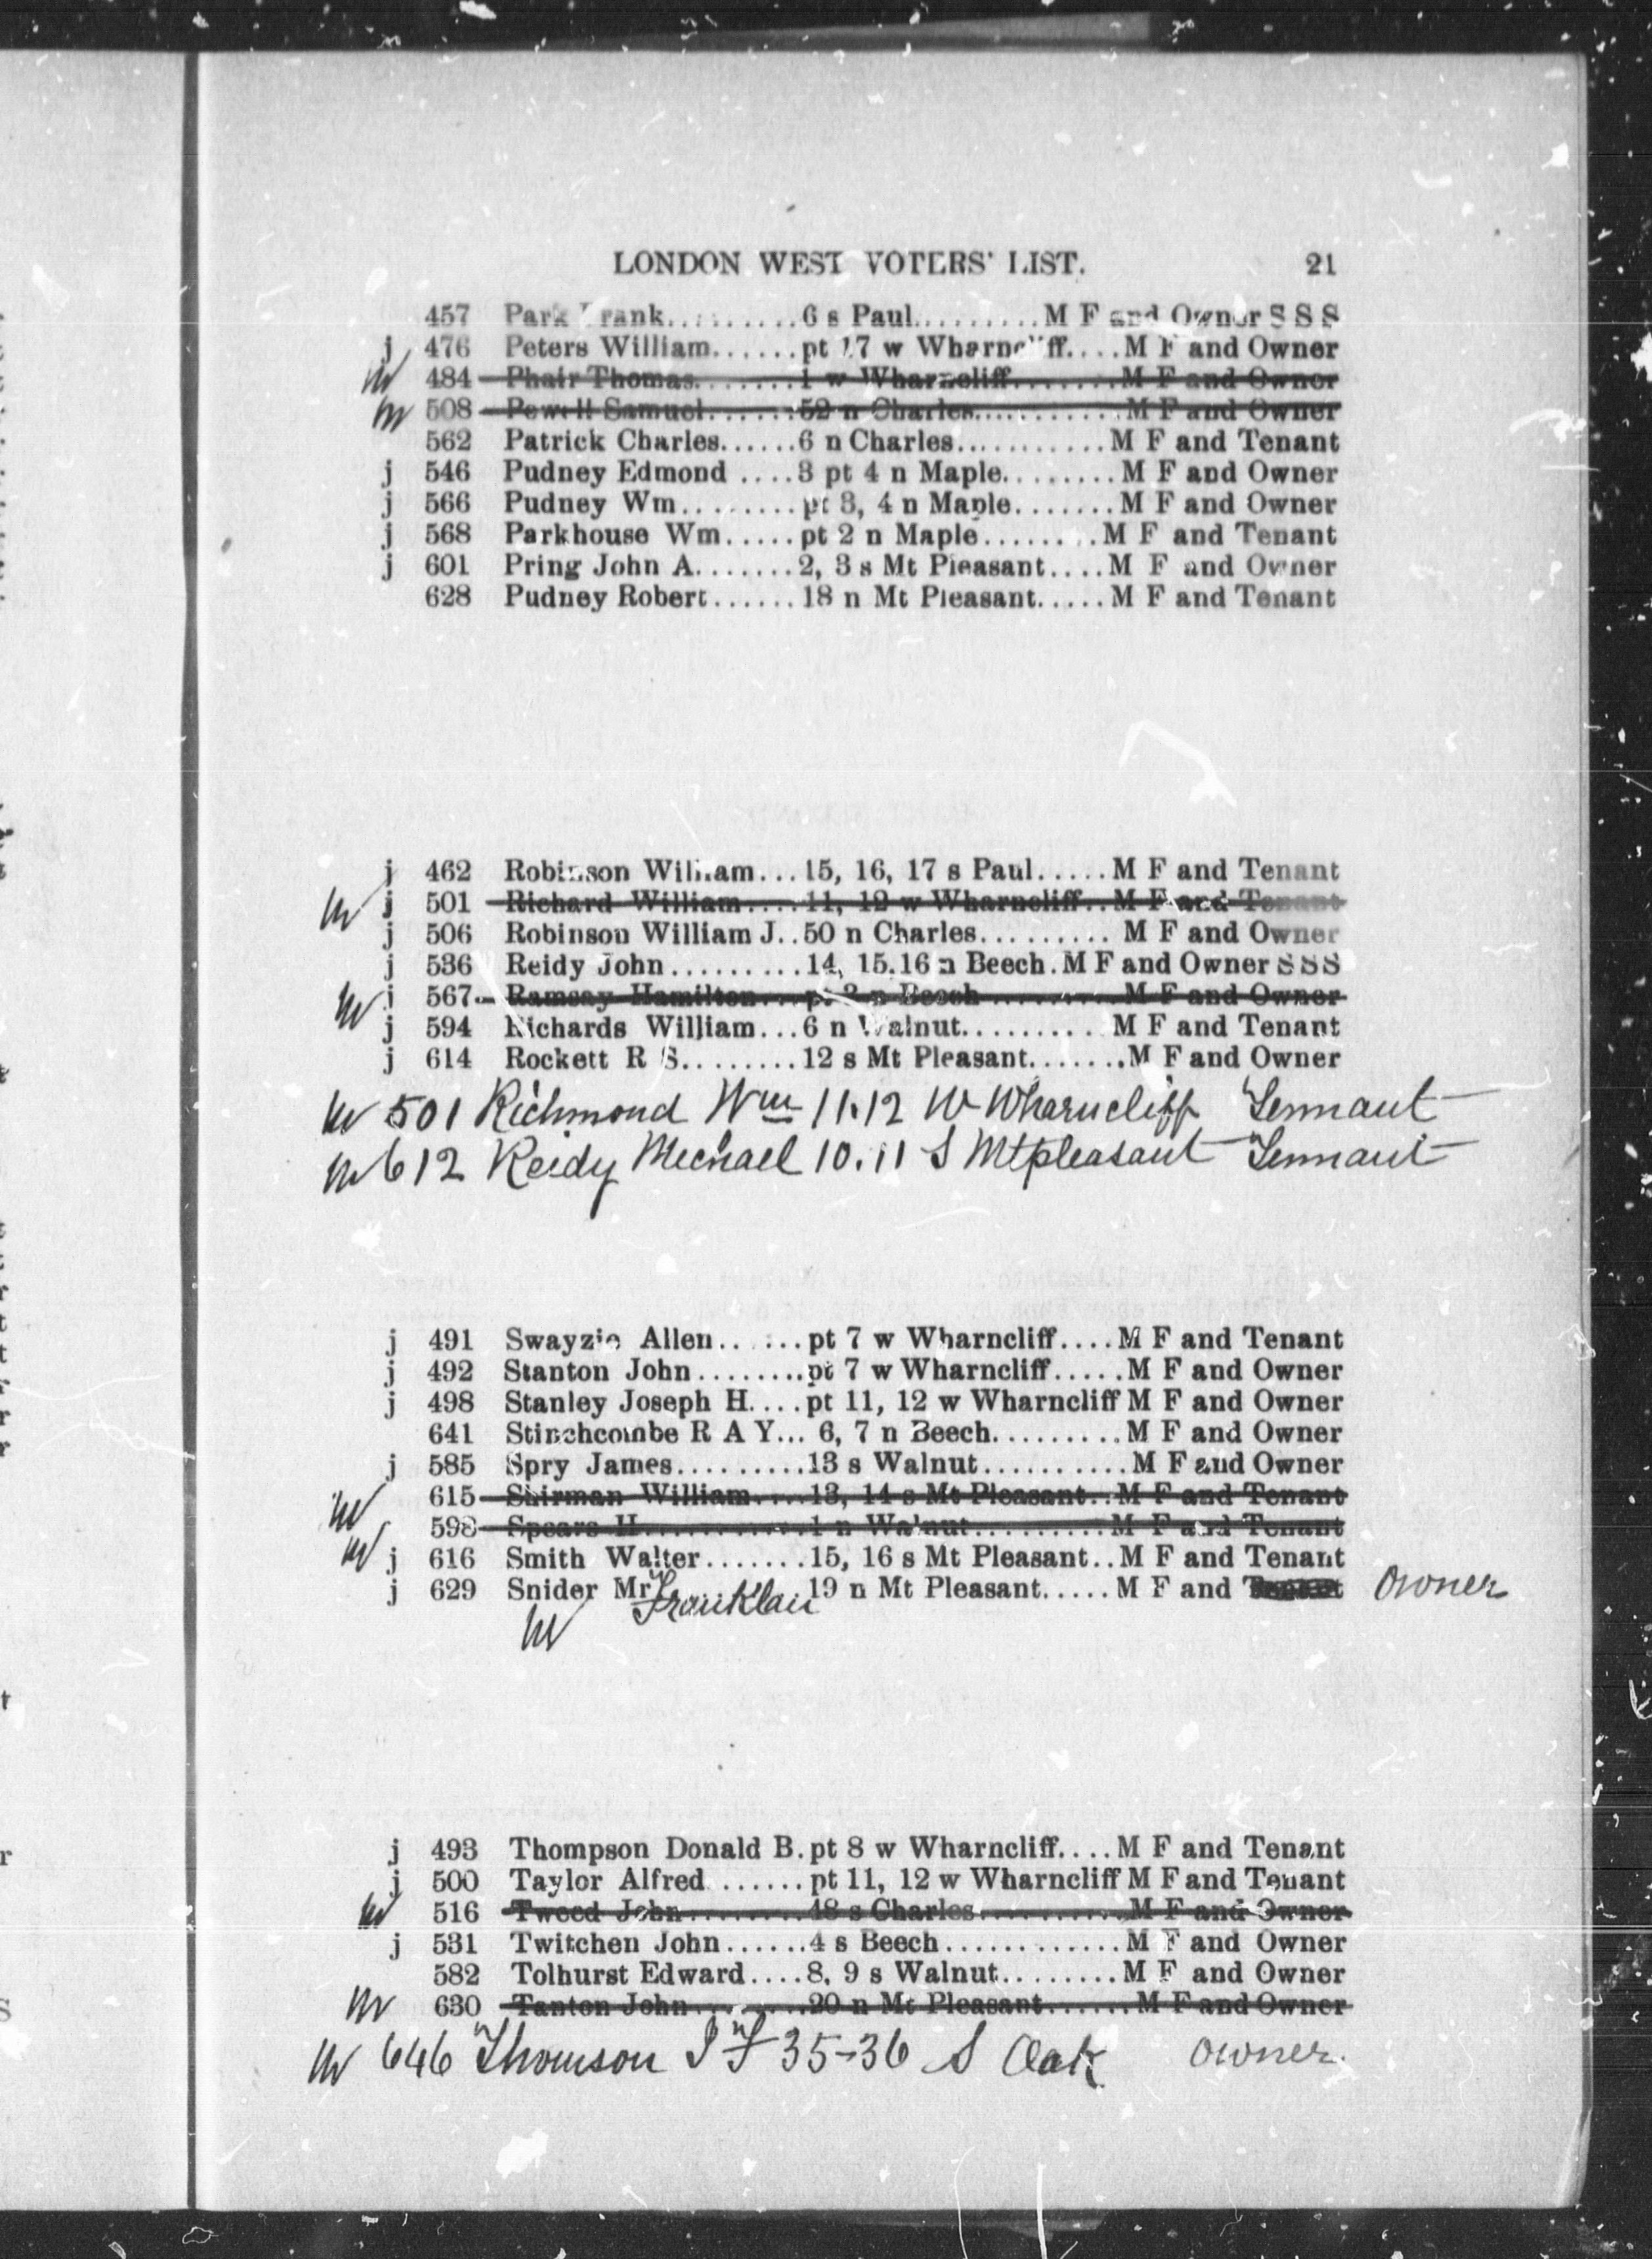 LONDON WEST VOTERS' LIST. 21
457 Park Frank..........6 s Paul.........M F and Owner S S S
j 476 Peters William......pt 17 w Wharncliff....M F and Owner
484 Phair Thomas........1 w Wharncliff.......M F and Owner
508 Powell Samuel......52 n Charles...........M F and Owner
562 Patrick Charles......6 n Charles...........M F and Tenant
j 546 Pudney Edmond ....3 pt 4 n Maple........M F and Owner
j 566 Pudney Wm........pt 3, 4 n Maple.......M F and Owner
j 568 Parkhouse Wm.....pt 2 n Maple........M F and Tenant
j 601 Pring John A.......2, 3 s Mt Pleasant....M F and Owner
628 Pudney Robert......18 n Mt Pleasant.....M F and Tenant
j 462 Robinson William...15, 16, 17 s Paul.....M F and Tenant
j 501 Richard William....11, 12 w Wharncliff..M F and Tenant
j 506 Robinson William J..50 n Charles......... M F and Owner
j 536 Reidy John.........14, 15.16 n Beech.M F and Owner S S S
j 567 Ramsay Hamilton...pt 2 n Beech .........M F and Owner
j 594 Richards William...6 n Walnut..........M F and Tenant
j 614 Rockett R S.........12 s Mt Pleasant.......M F and Owner
501 Richmond Wm 11.12 W Wharncliff Tennant
612 Reidy Mechael 10.11 S Mtpleasant Tennant
j 491 Swayzie Allen.......pt 7 w Wharncliff....M F and Tenant
j 492 Stanton John........pt 7 w Wharncliff.....M F and Owner
j 498 Stanley Joseph H....pt 11, 12 w Wharncliff M F and Owner
641 Stinchcombe R A Y... 6, 7 n Beech.........M F and Owner
j 585 Spry James.........13 s Walnut...........M F and Owner
615 Shirman William....13, 14 s Mt Pleasant..M F and Tenant
598 Spears H...........1 n Walnut.........M F and Tenant
j 616 Smith Walter.......15, 16 s Mt Pleasant..M F and Tenant
j 629 Snider Mr Franklan 19 n Mt Pleasant.....M F and Tenant owner
j 493 Thompson Donald B.pt 8 w Wharncliff....M F and Tenant
j 500 Taylor Alfred ......pt 11, 12 w Wharncliff M F and Tenant
516 Tweed John.........48 s Charles...........M F and Owner
j 531 Twitchen John......4 s Beech............M F and Owner
582 Tolhurst Edward....8, 9 s Walnut........M F and Owner
630 Tanton John........20 n Mt Pleasant......M F and Owner
646 Thomson 35-36 S Oak owner.